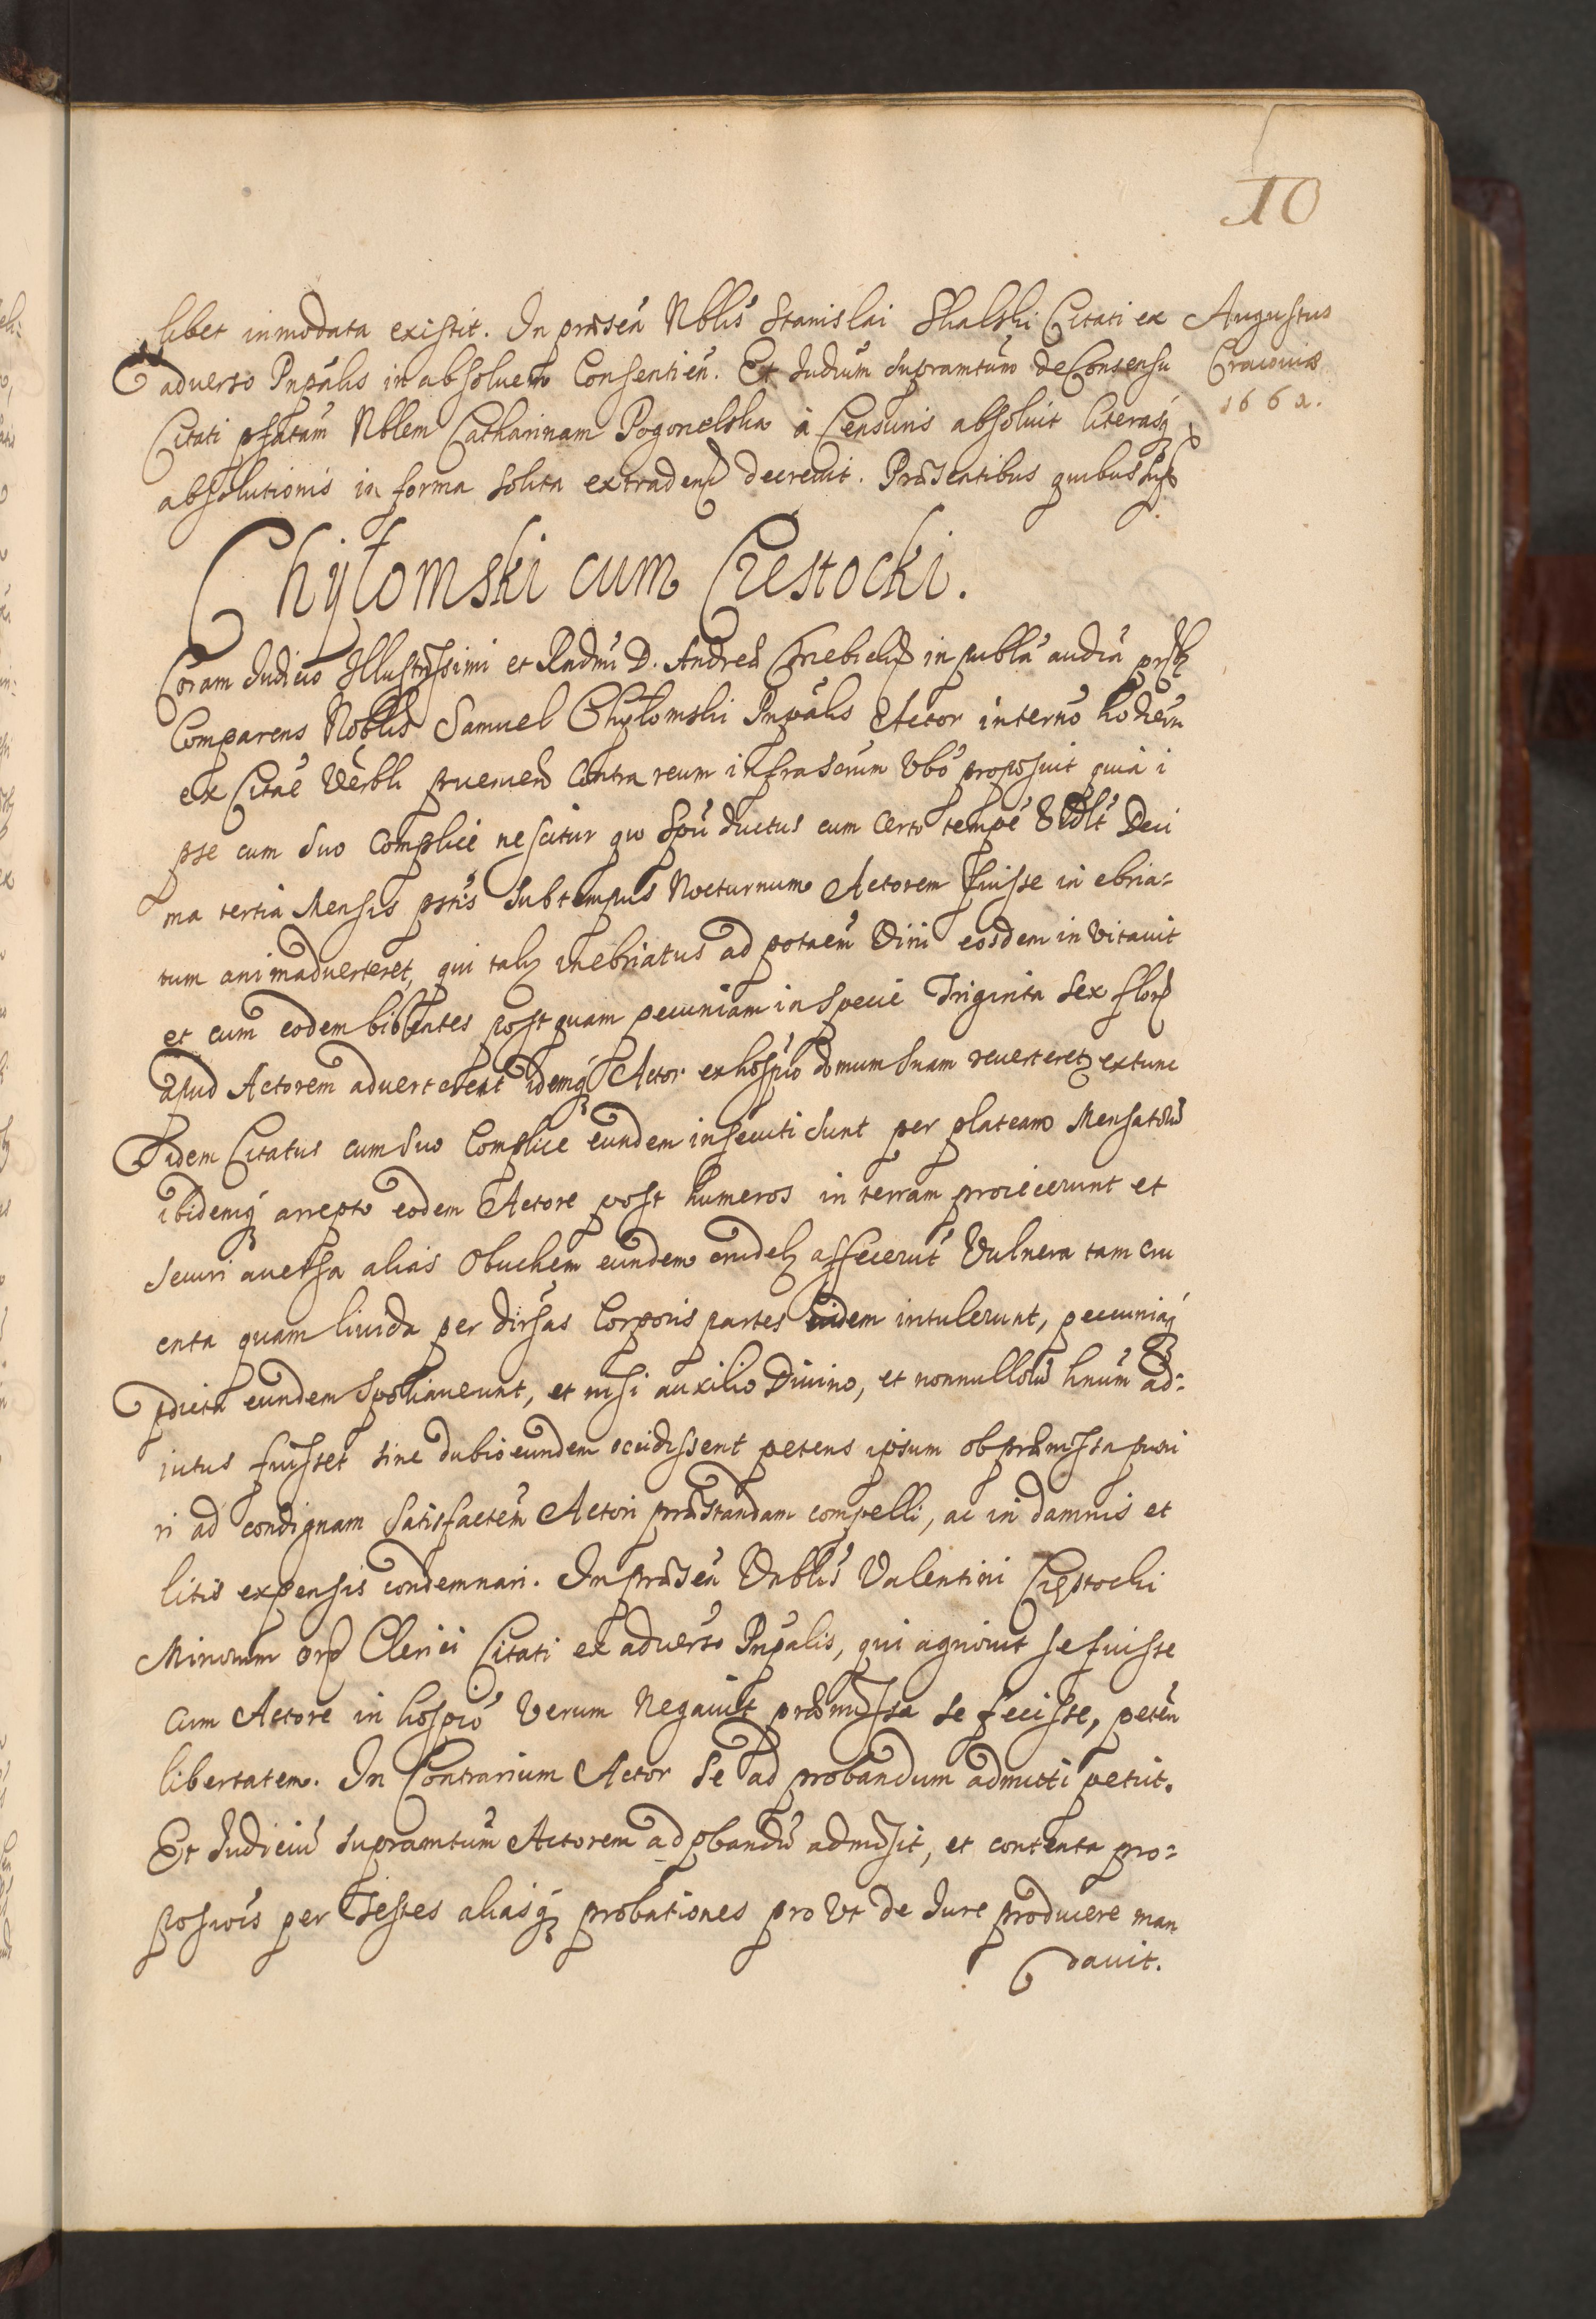 10
libet inmodata existit. In præsen̄ Nblis Stanislai Skalski Citati ex
Augustus
adverso Pnpalis in absoluem Consentien̄. Et Iudium supramtum de Consensu
Cracouiæ
Citati pfatam Nblem Catharinam Pogorzelska à Censuris absoluit literasq
1662.
absolutionis in forma solita extradend decreuit. Præsentibus quibus sup
Chyłomski cum Czestocki.
Coram Iudicio Illustrissimi et Rndmi D. Andreæ Trzebicki in publa audia
Comparens Noblis Samuel Chyłomski Pnpalis Actor interno hodiern
ex Citae Verbli prouenien Contra reum infrascrum Vbo proposuit quia i
pse cum suo Complice nescitur quo Spu ductus cum certo tempe Vidlt Deci
ma tertia Mensis pntis sub tempus Nocturnum Actorem fuisse in ebria-
tum animaduerteret, qui talr inebriatus ad potaem Vini eosdem in Vitauit
et cum eodem bibentes postquam pecuniam in specie Triginta sex flor
apud Actorem aduerterent idemq Actor ex hospio domum suam reuerteretr extunc
idem Citatus cum suo Complice eundem insecuti sunt per plateam Mensatoru
ibidemq arrepto eodem Actore post humeros in terram proiecerunt et
securi auersa alias Obuchem eundem crudelr affecerut Vulnera tam cru
enta quam liuida per dirsas Corporis partes eidem intulerunt, pecuniaq
pdicta eundem spoliauerunt, et nisi auxilio Diuino, et nonnulloru hnum ad-
iutus fuisset sine dubio eundem occidissent petens ipsum ob præmissa puni
ri ad condignam satisfactem Actori præstandam compelli, ac in damnis et
litis expensis condemnari. In præsen̄ Vnblis Valentini Częstocki
Minorum Ord Clerici Citati ex aduerso Pnpalis, qui agnouit se fuisse
cum Actore in hospio Verum Negauit præmissa se fecisse, peten
libertatem. In Contrarium Actor se ad probandum admitti petiit.
Et Iudiciu supramtum Actorem ad pbandu admisit, et contenta pro-
posiois per Testes aliasq probationes pro Vt de Iure producere man
dauit.